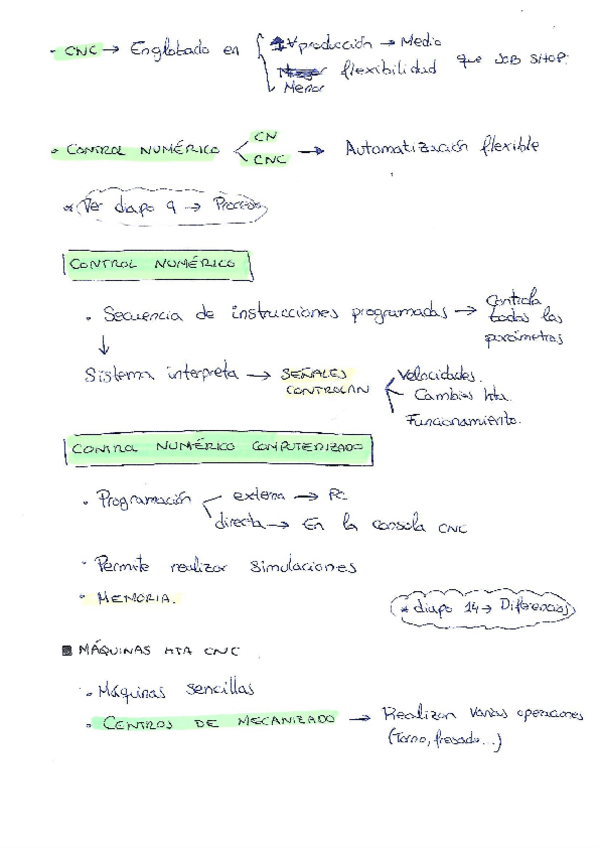 - CNC → Englobado en { ∀ producción → Medio
flexibilidad que JOB SHOP.
Menor
• CONTROL NUMÉRICO < CN
CNC → Automatización flexible
* Ver diapo 9 → Proceso
CONTROL NUMÉRICO
• Secuencia de instrucciones programadas → Controla todos los parámetros
↓
Sistema interpreta → SEÑALES CONTROLAN
Velocidades.
Cambios hta.
Funcionamiento.
CONTROL NUMÉRICO COMPUTERIZADO
• Programación
externa → PC
directa → En la consola CNC
• Permite realizar simulaciones
• MEMORIA.
* diapo 14 → Diferencias
■ MÁQUINAS HTA CNC
• Máquinas sencillas
• CENTROS DE MECANIZADO → Realizan varias operaciones
(Torno, fresado...)